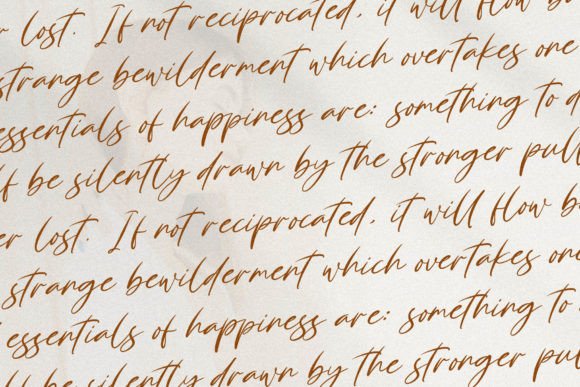 r lost. If not reciprocated, it will flow b
strange bewilderment which overtakes one
essentials of happiness are: something to d
lf be silently drawn by the stronger pull
er lost. If not reciprocated, it will flow b
strange bewilderment which overtakes one
essentials of happiness are: something to
ll be silently drawn by the stronger pull